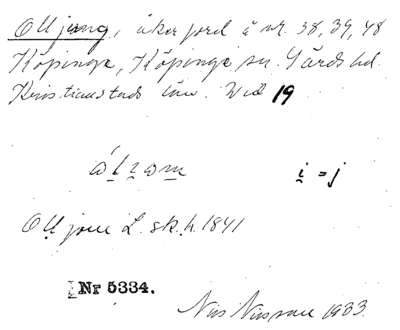 Olljung, åkerjord å nr. 38, 39, 48
Köpinge, Köpinge sn. Gärds hd.
Kristianstads län. Wed 19
i = j
Olljone L. sk. h. 1841
Nr 5334.
Nils Nilsson 1933.